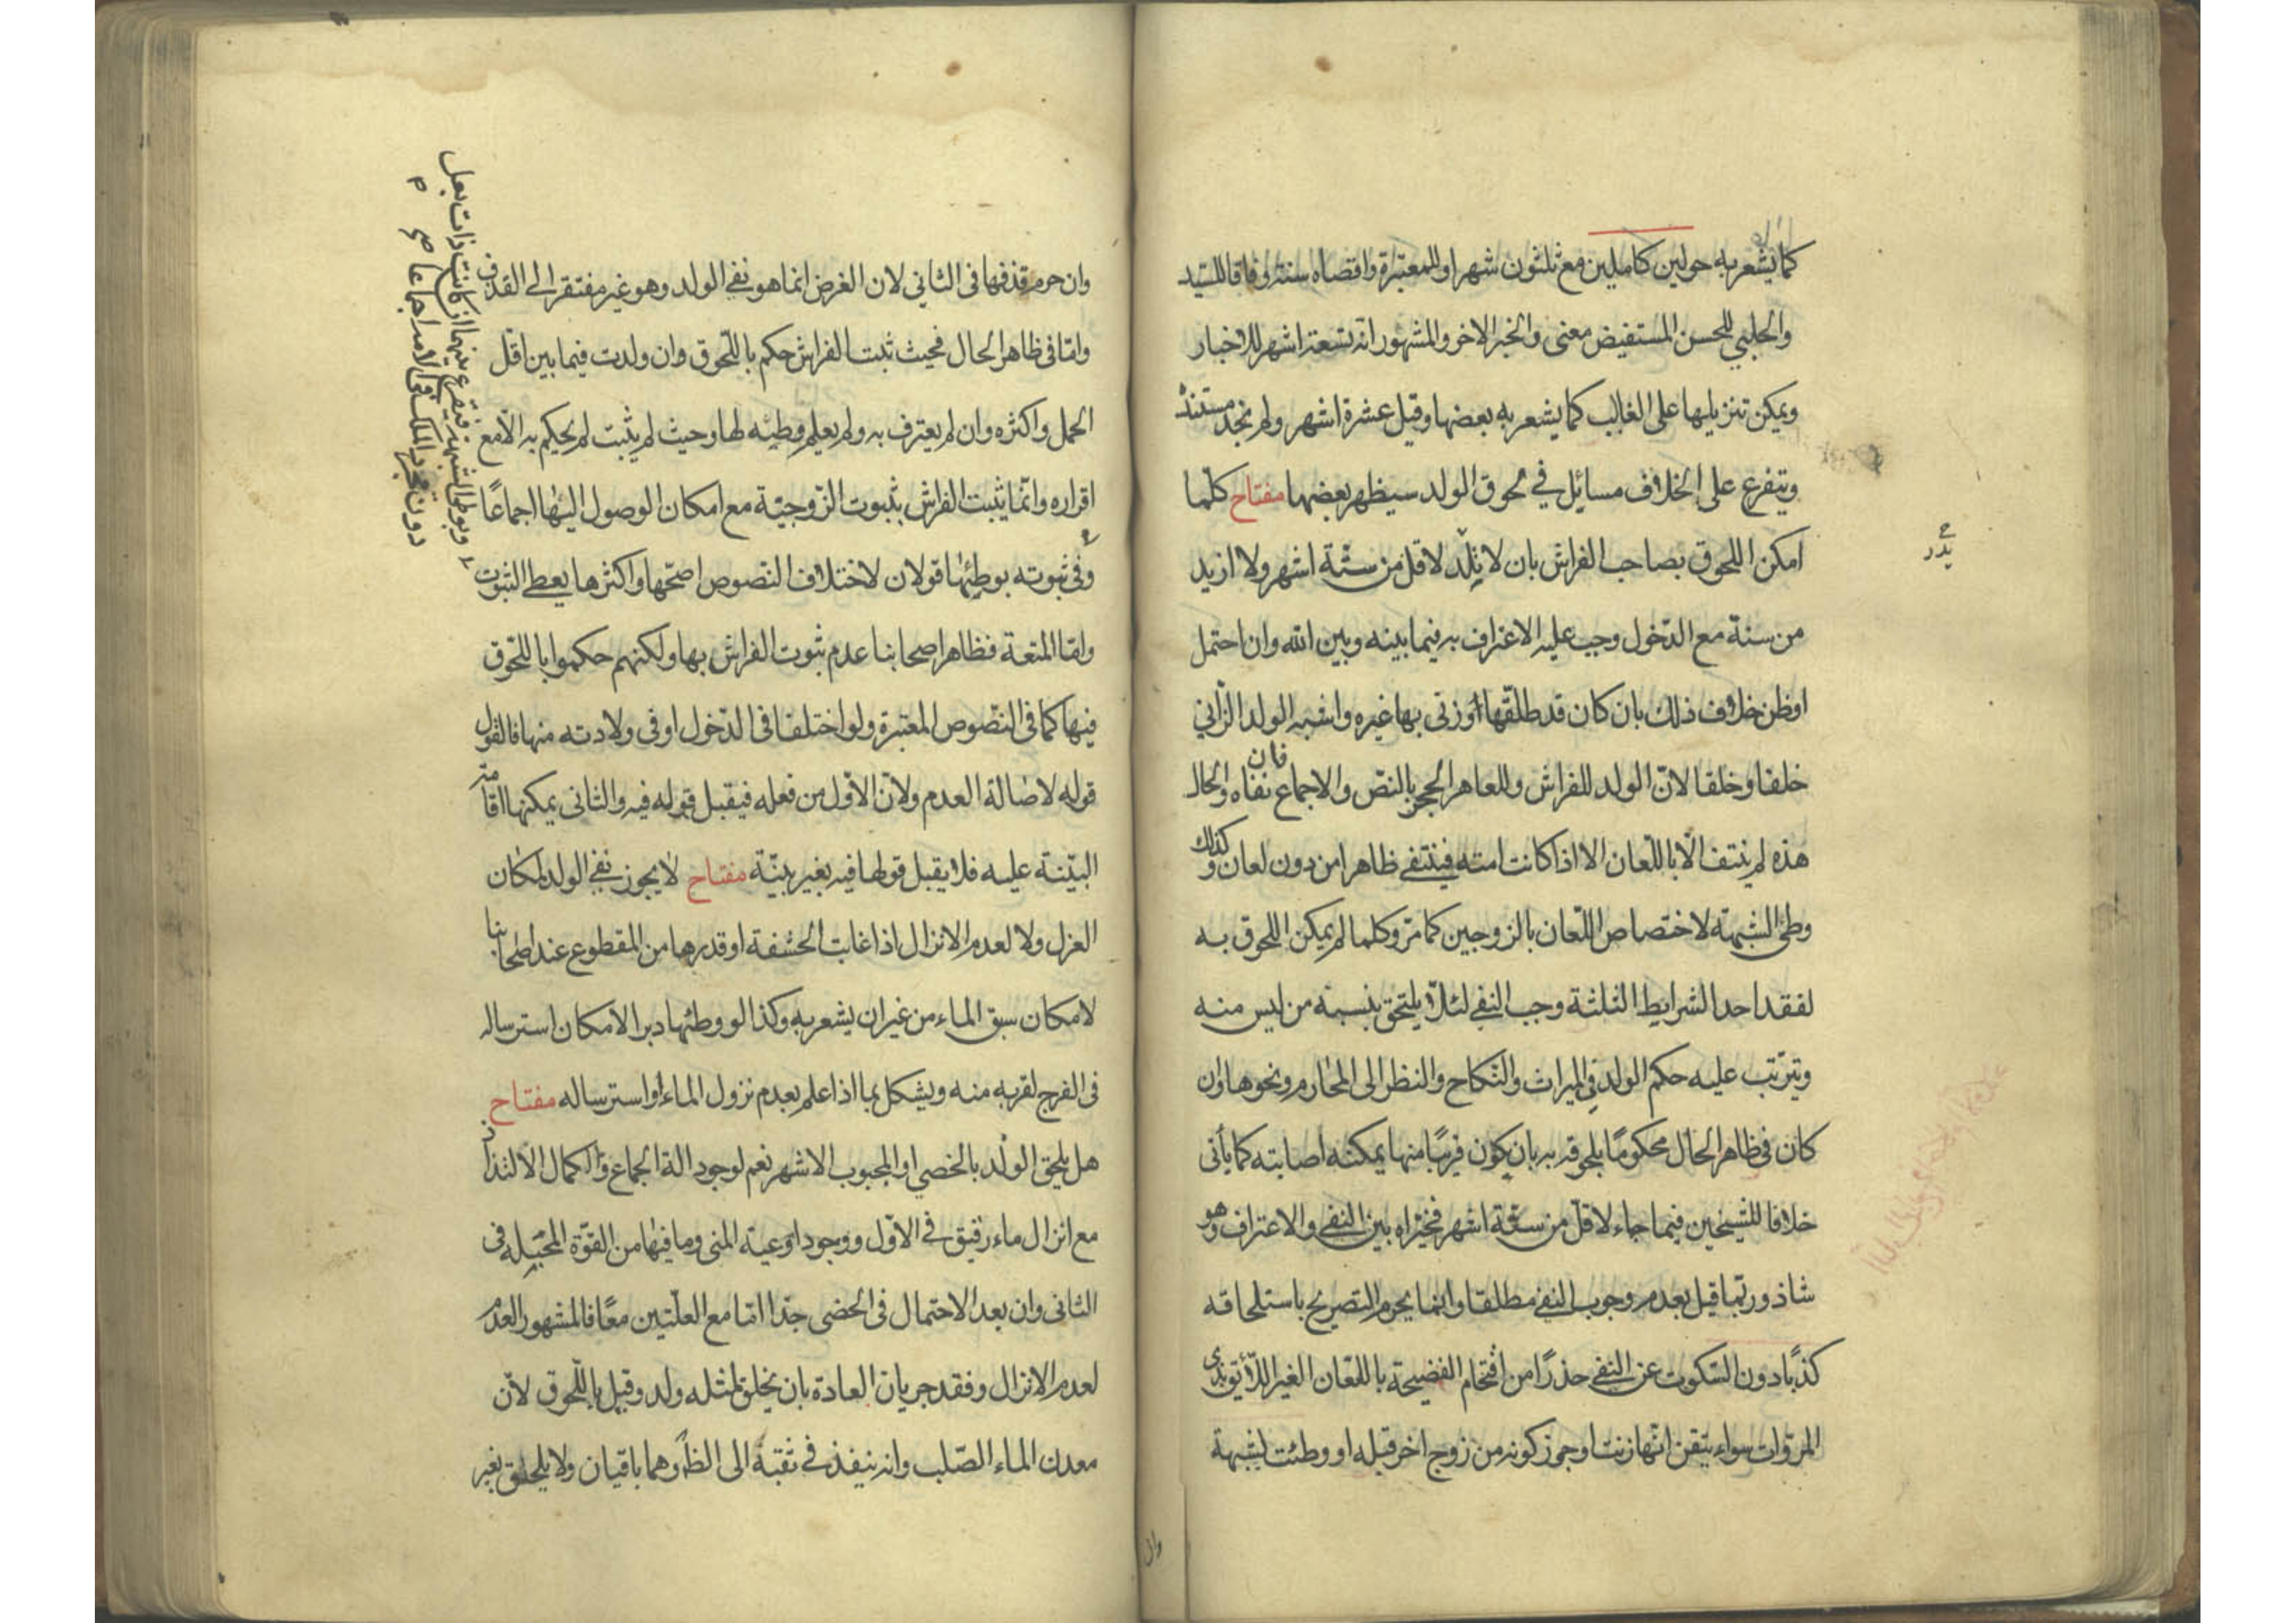 كما يشعر به حولين كاملين مع ثلثون شهرا وللمعتبرة واقصاه سنة وفاقا للسيد
والحلبي للحسن المستفيض معنى والخبر الاخر والمشهور انه تسعة اشهر للاخبار
ويمكن تنزيلها على الغالب كما يشعر به بعضها وقيل عشرة اشهر ولم نجد مستنده
ويتفرع على الخلاف مسائل في لحوق الولد سيظهر بعضها مفتاح كلما
امكن اللحوق بصاحب الفراش بان لا تلد لاقل من ستة اشهر ولا ازيد
من سنة مع الدخول وجب عليه الاعتراف به فيما بينه وبين الله وان احتمل
او ظن خلاف ذلك بان كان قد طلقها او زنى بها غيره واشبه الولد الزاني
خلقا وخلقا لان الولد للفراش وللعاهر الحجر بالنص والاجماع فان نفاه والحال
هذه لم ينتف الا باللعان الا اذا كانت امته فينتفى ظاهرا من دون لعان وكذلك
وطئ الشبهة لاختصاص اللعان بالزوجين كما مر وكلما لم يمكن اللحوق به
لفقد احد الشرايط الثلثة وجب النفى لئلا يلتحق بنسبه من ليس منه
ويترتب عليه حكم الولد في الميراث والنكاح والنظر الى المحارم ونحوها وان
كان في ظاهر الحال محكوما بلحوقه به بان يكون قريبا منها يمكنه اصابته كما يأتى
خلافا للشيخين فيما جاء لاقل من ستة اشهر فخيراه بين النفى والاعتراف وهو
شاذ وربما قيل بعدم وجوب النفى مطلقا وانما يحرم التصريح باستلحاقه
كذبا دون السكوت عن النفى حذرا من اقتحام الفضيحة باللعان الغير اللائق بذى
المروات سواء تيقن انها زنت او جوز كونه من زوج اخر قبله او وطئت لشبهة
وان
وان حرم قذفها فى الثاني لان الغرض انما هو نفى الولد وهو غير مفتقر الى القذف
واما فى ظاهر الحال فحيث ثبت الفراش حكم باللحوق وان ولدت فيما بين اقل
الحمل واكثره وان لم يعترف به ولم يعلم وطئه لها وحيث لم يثبت لم يحكم به الا مع
اقراره وانما يثبت الفراش بثبوت الزوجية مع امكان الوصول اليها اجماعا
وفى ثبوته بوطئها قولان لاختلاف النصوص اصحها واكثرها يعطى الثبوت
واما المتعة فظاهر اصحابنا عدم ثبوت الفراش بها ولكنهم حكموا باللحوق
فيها كما فى النصوص المعتبرة ولو اختلفا فى الدخول او فى ولادته منها فالقول
قوله لاصالة العدم ولان الاول من فعله فيقبل قوله فيه والثانى يمكنها اقامة
البينة عليه فلا يقبل قولها فيه بغير بينة مفتاح لا يجوز نفى الولد لمكان
العزل ولا لعدم الانزال اذا غابت الحشفة او قدرها من المقطوع عند اصحابنا
لامكان سبق الماء من غير ان يشعر به وكذا لو وطئها دبرا لامكان استرساله
فى الفرج لقربه منه ويشكل بما اذا علم بعدم نزول الماء او استرساله مفتاح
هل يلحق الولد بالخصي او المجبوب الاشهر نعم لوجود الة الجماع وكمال الالتذاذ
مع انزال ماء رقيق في الاول ووجود اوعية المنى وما فيها من القوة المحبلة فى
الثانى وان بعد الاحتمال فى الخصى جدا اما مع العلتين معا فالمشهور العدم
لعدم الانزال وفقد جريان العادة بان يخلق لمثله ولد وقيل باللحوق لان
معدن الماء الصلب وانه ينفذ في ثقبة الى الظاهر وهما باقيان ولا يلحق بغير
وبوطئ الشبهة فيقرع بينهما ان كانت ذات بعل
دون مجرد الملك فى الامة اجماعا صح م